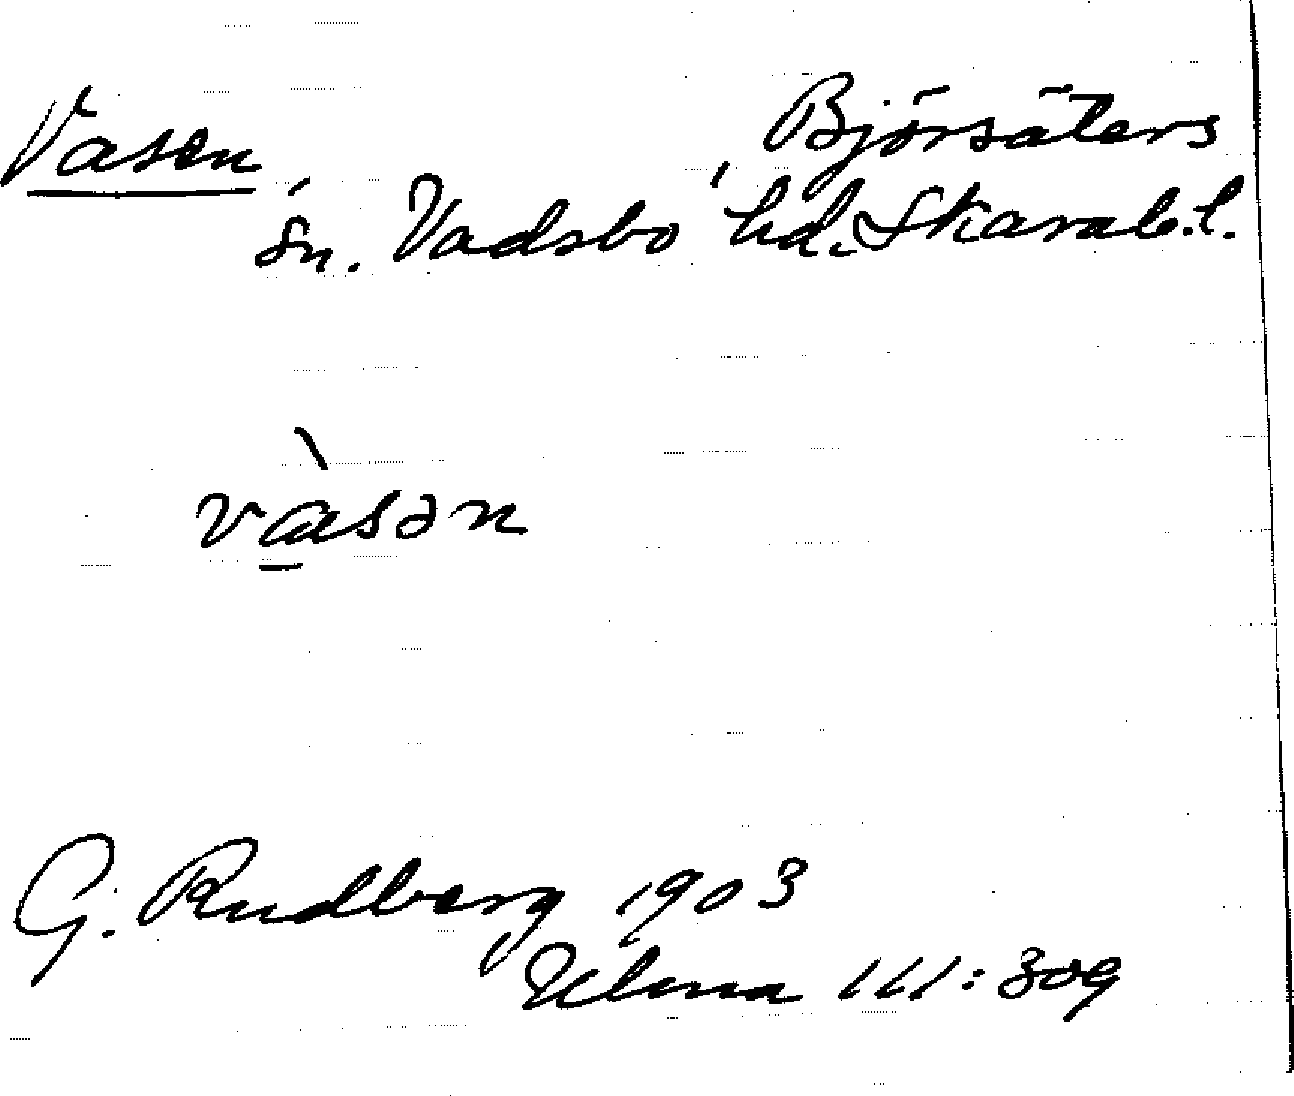 Vasen, Björsäters
sn. Vadsbo hd. Skarab.l.
v̀a̲sən
G. Rudberg 1903
Ulma 111:309